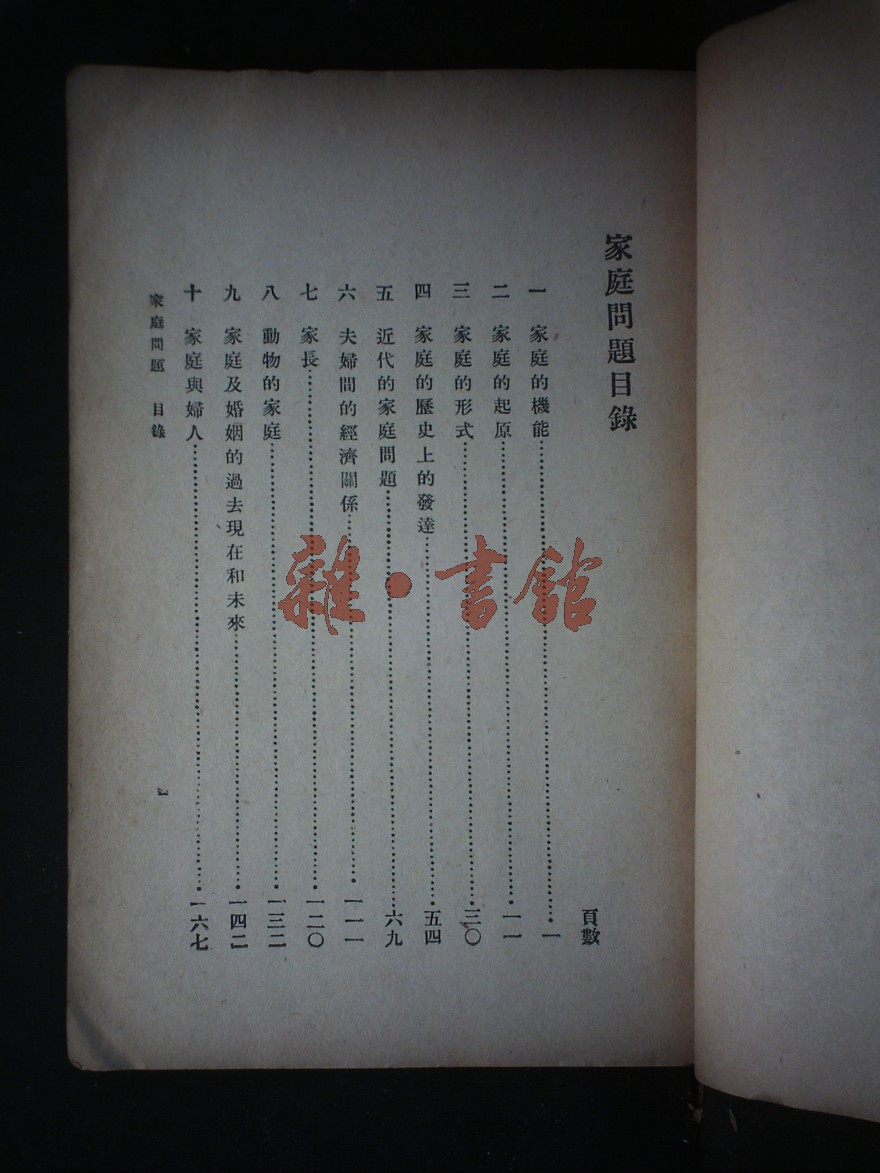 家庭問題目錄
頁數
一 家庭的機能……一
二 家庭的起原……一一
三 家庭的形式……三〇
四 家庭的歷史上的發達……五四
五 近代的家庭問題……六九
六 夫婦間的經濟關係……一一一
七 家長……一二〇
八 動物的家庭……一三二
九 家庭及婚姻的過去現在和未來……一四二
十 家庭與婦人……一六七
家庭問題 目錄
一
雜·書館